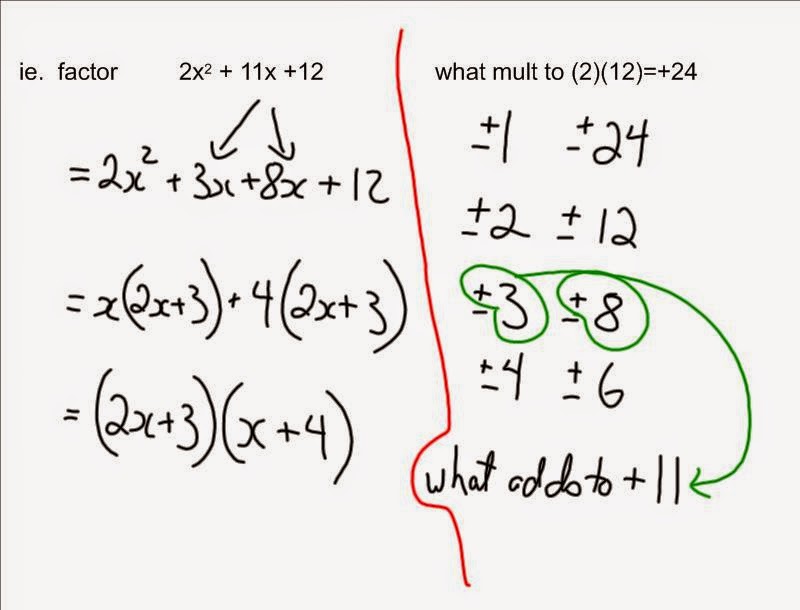 ie. factor 2x² + 11x +12
= 2x² + 3x + 8x + 12
= x(2x+3) + 4(2x+3)
= (2x+3)(x+4)
what mult to (2)(12)=+24
±1 ±24
±2 ±12
±3 ±8
±4 ±6
what adds to +11